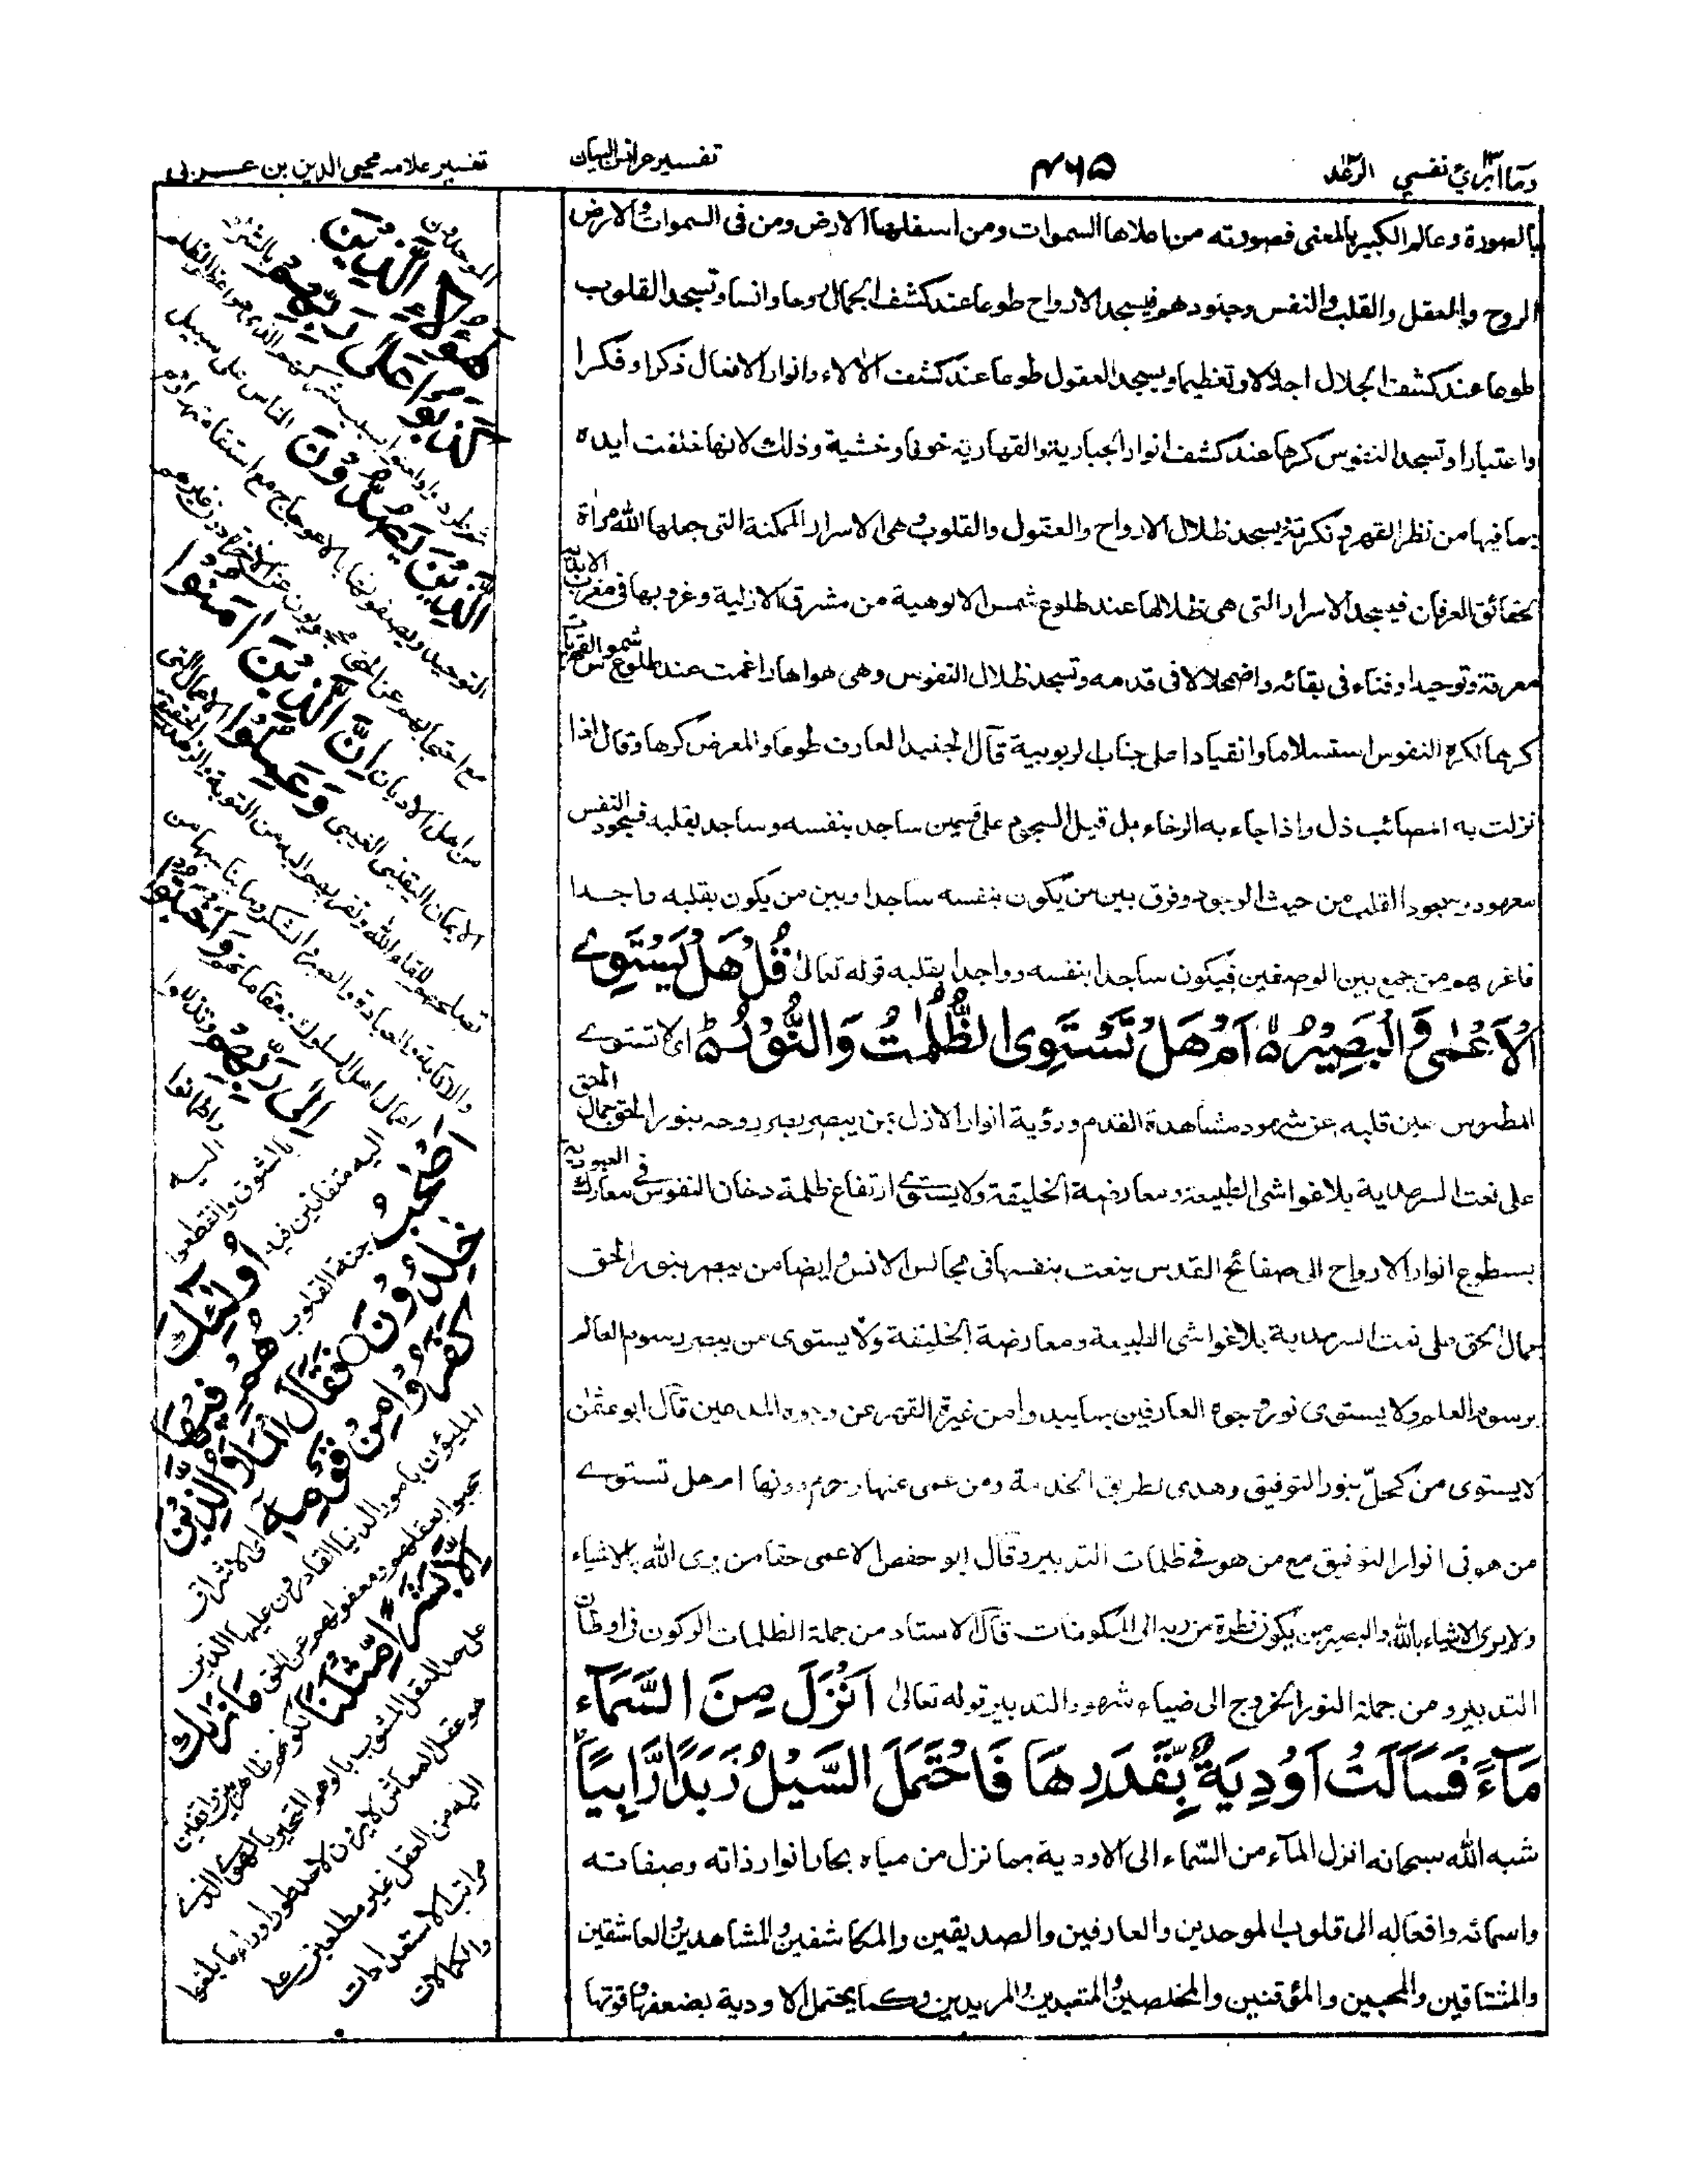 وما ابرئ نفسي ١٣ الرعد ١٣
٤٦٥
تفسير عرائس البيان
تفسير علامه محيي الدين بن عربى
بالصورة وعالم الكبير بالمعنى فصورته من اعلاها السموات ومن اسفلها الارض ومن فى السموات والارض
الروح والعقل والقلب والنفس وجنودهم فيسجد الارواح طوعا عند كشف الجمال روحا وانسا وتسجد القلوب
طوعا عند كشف الجلال اجلالا وتعظيما ويسجد العقول طوعا عند كشف الالاء وانوار الافعال ذكرا وفكرا
واعتبارا وتسجد النفوس كرها عند كشف انوار الجبارية والقهارية خوفا وخشية وذلك لانها خلفت ايده
بما فيها من نظر القهر ويسجد ظلال الارواح والعقول والقلوب وهى الاسرار الممكنة التى جعلها الله مراة
لحقائق العرفان فيسجد الاسرار التى هى ظلالها عند طلوع شمس الالوهية من مشرق الازلية وغروبها فى مغرب الابدية
معرفة وتوحيدا وفناء فى بقائه واضمحلالا فى قدمه وتسجد ظلال النفوس وهى هواها راغمت عند طلوع شموس القهريات
كرها لكره النفوس استسلاما وانقيادا على جناب لربوبية قال الجنيد العارف طوعا والمعرض كرها وقال اذا
نزلت به المصائب ذل واذا جاء به الرخاء بل قيل السجود على قسمين ساجد بنفسه وساجد بقلبه فسجود النفس
معهود وسجود القلب من حيث الوجود وفرق بين من يكون بنفسه ساجدا وبين من يكون بقلبه واجدا
فاغرهم من جمع بين الوصفين فيكون ساجدا بنفسه وواجدا بقلبه قوله تعالى قُلْ هَلْ يَسْتَوِي
الْاَعْمٰى وَالْبَصِيْرُ اَمْ هَلْ تَسْتَوِى الظُّلُمٰتُ وَالنُّوْرُ اى لا تستوى
المطموس عين قلبه عن شهود مشاهدة القدم ورؤية انوار الازل بمن يبصر بصر روحه بنور الحق جمال الحق
على نعت السرمدية بلا غواشى الطبيعة ومعارضة الخليقة ولا يستوى ارتفاع ظلمة دخان النفوس فى معارك العبودية
بسطوع انوار الارواح الى صفائح القدس بنعت بنفسها فى مجالس الانس وايضا من يبصر بنور الحق
جمال الحق على نعت السرمدية بلا غواشى الطبيعة ومعارضة الخليقة ولا يستوى من يبصر رسوم العالم
برسوم العلم ولا يستوى نور وجوه العارفين بما يبدوا من غيرة القهر عن وجوه المدعين قال ابو عثمٰن
لا يستوى من كحلّ بنور التوفيق وهدى لطريق الخدمة ومن عمى عنها وحرم دونها ام هل تستوى
من هو فى انوار التوفيق مع من هو فى ظلمات التدبير وقال ابو حفص الاعمى حقا من يرى الله بالاشياء
ولا يرى الاشياء بالله والبصير من يكون نظره من ربه الى المكونات قال الاستاد من جملة الظلمات الركون فى اوطان
التدبير ومن جملة النور الخروج الى ضياء شهود التدبير قوله تعالى اَنْزَلَ مِنَ السَّمَآءِ
مَآءً فَسَالَتْ اَوْدِيَةٌ بِّقَدَرِهَا فَاحْتَمَلَ السَّيْلُ زَبَدًا رَّابِيًا
شبه الله سبحانه انزل المآء من السّماء الى الاودية بما نزل من مياه بحار انوار ذاته وصفاته
واسمائه وافعاله الى قلوب الموحدين والعارفين والصديقين والمكاشفين والمشاهدين والعاشقين
والمشتاقين والمحبين والمؤقنين والمخلصين والمتعبدين والمريدين وكما يحتمل الاودية بضعفها وقوتها
الموحدون
هٰٓؤُلَآءِ الَّذِيْنَ
كَذَبُوْا عَلٰى رَبِّهِمْ بالشرك
الَّذِيْنَ يَصُدُّوْنَ الناس عن سبيل
التوحيد ويصفونها بالاعوجاج مع استقامتها وهم
من اهل الاديان اِنَّ الَّذِيْنَ اٰمَنُوْا
الايمان اليقينى الغيبى وَعَمِلُوا الاعمال التى
تصلحهم للقاء الله وتقربهم اليه من التوبة والزهد
اعمال اهل السلوك ومقاماتهم وَاَخْبَتُوْا
اِلٰى رَبِّهِمْ وتذللوا
واطمانوا
اليه بالشوق وانقطعوا
اليه متفانين فيه اُولٰٓئِكَ
اَصْحٰبُ جنة القلوب هُمْ فِيْهَا
خٰلِدُوْنَ فَقَالَ الْمَلَاُ الَّذِيْنَ
كَفَرُوْا مِنْ قَوْمِهٖ اى الاشراف
المليؤن بامور الدنيا القادرون عليها الذين
حجبوا بعقلهم ومعقولهم عن الحق مَا نَرٰىكَ
اِلَّا بَشَرًا مِّثْلَنَا لكونهم ظاهريين واقفين
على حد العقل المشوب بالوهم المتحير بالهوى الذى
هو عقل المعاش لا يرون لاحد طورا وراء ما بلغوا
اليه من العقل غير مطلعين على
مراتب الاستعدادات
والكمالات